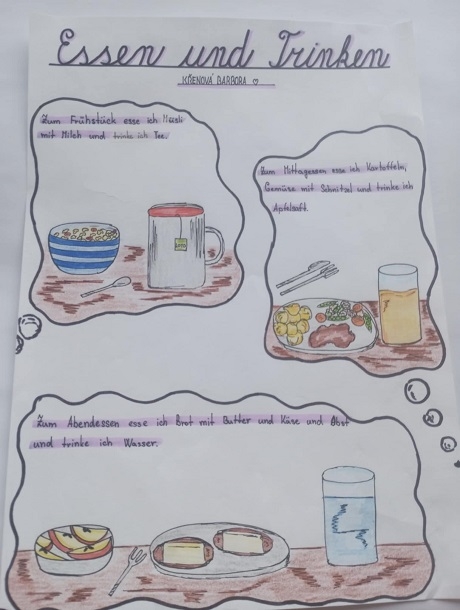 Essen und Trinken
KŇENOVÁ BARBORA ♡
Zum Frühstück esse ich Müsli
mit Milch und trinke ich Tee.
Zum Mittagessen esse ich Kartoffeln,
Gemüse mit Schnitzel und trinke ich
Apfelsaft.
Zum Abendessen esse ich Brot mit Butter und Käse und Obst
und trinke ich Wasser.